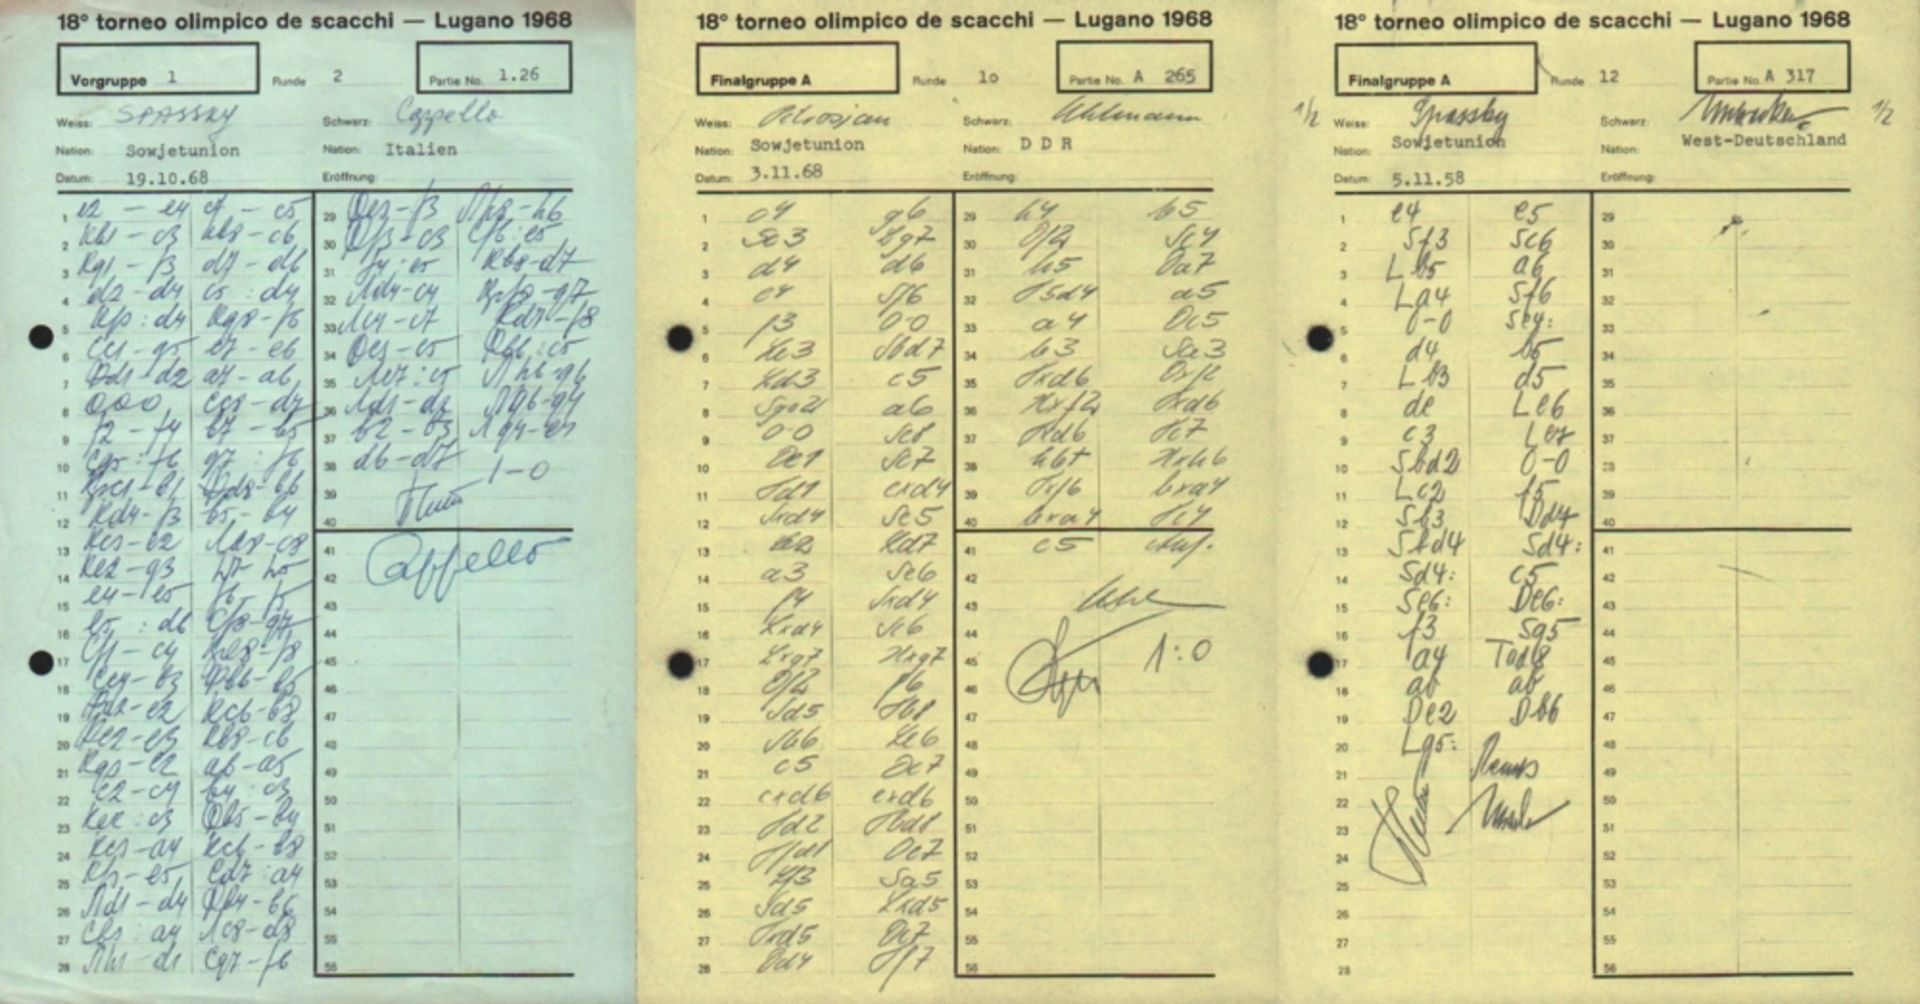 18° torneo olimpico de scacchi — Lugano 1968
Vorgruppe 1 Runde 2 Partie No. 1.26
Weiss: SPASSKY Schwarz: Cappello
Nation: Sowjetunion Nation: Italien
Datum: 19.10.68 Eröffnung:
1 e2 — e4 c7 — c5
2 Kb1 — c3 Kb8 — c6
3 Kg1 — f3 d7 — d6
4 d2 — d4 c5 : d4
5 Kf3 : d4 Kg8 — f6
6 Cc1 — g5 e7 — e6
7 Фd1 — d2 a7 — a6
8 0-0-0 Cc8 — d7
9 f2 — f4 b7 — b5
10 Cg5 : f6 g7 : f6
11 Kpc1 — b1 Фd8 — b6
12 Kd4 — f3 b5 — b4
13 Kc3 — e2 Лa8 — c8
14 Ke2 — g3 h7 — h5
15 e4 — e5 f6 — f5
16 e5 : d6 Cf8 — g7
17 Cf1 — c4 Kpe8 — f8
18 Cc4 — b3 Фb6 — b5
19 Фd2 — e2 Kc6 — b8
20 Фe2 — e3 Kb8 — c6
21 Kg3 — e2 a6 — a5
22 c2 — c4 b4 : c3
23 Ke2 : c3 Фb5 — b4
24 Kc3 — a4 Kc6 — b8
25 Kf3 — e5 Cd7 : a4
26 Лd1 — d4 Фb4 — b6
27 Cb3 : a4 Лc8 — d8
28 Лh1 — d1 Cg7 — f6
29 Фe3 — f3 Лh8 — h6
30 Фf3 — c3 Cf6 : e5
31 f4 : e5 Kb8 — d7
32 Лd4 — c4 Kpf8 — g7
33 Лc4 — c7 Kd7 — f8
34 Фc3 — c5 Фb6 : c5
35 Лc7 : c5 Лh6 — g6
36 Лd1 — d2 Лg6 — g4
37 b2 — b3 Лg4 — e4
38 d6 — d7 1 — 0
39
40
41 Cappello
42
43
44
45
46
47
48
49
50
51
52
53
54
55
56
18° torneo olimpico de scacchi — Lugano 1968
Finalgruppe A Runde 10 Partie No. A 265
Weiss: Petrosjan Schwarz: Uhlmann
Nation: Sowjetunion Nation: D D R
Datum: 3.11.68 Eröffnung:
1 c4 g6
2 Sc3 Lg7
3 d4 d6
4 e4 Sf6
5 f3 0-0
6 Le3 Sbd7
7 Ld3 c5
8 Sge2 a6
9 0-0 Se8
10 De1 Sc7
11 Td1 cxd4
12 Sxd4 Se5
13 Le2 Ld7
14 a3 Se6
15 f4 Sxd4
16 Lxd4 Sc6
17 Lxg7 Kxg7
18 Df2 f6
19 Sd5 Tb8
20 Sb6 Le6
21 c5 Dc7
22 cxd6 exd6
23 Td2 Tbd8
24 Tfd1 De7
25 Lf3 Sa5
26 Sd5 Lxd5
27 Txd5 Dc7
28 Dd4 Tf7
29 h4 b5
30 Df2 Sc4
31 h5 Da7
32 T5d4 a5
33 a4 Dc5
34 b3 Sa3
35 Txd6 Dxf2
36 Kxf2 Txd6
37 Txd6 Tc7
38 h6+ Kxh6
39 Txf6 bxa4
40 bxa4 Sc4
41 e5 Auf.
42
43
44
45 1:0
46
47
48
49
50
51
52
53
54
55
56
18° torneo olimpico de scacchi — Lugano 1968
Finalgruppe A Runde 12 Partie No. A 317
1/2 Weiss: Spassky Schwarz: 1/2
Nation: Sowjetunion Nation: West-Deutschland
Datum: 5.11.58 Eröffnung:
1 e4 e5
2 Sf3 Sc6
3 Lb5 a6
4 La4 Sf6
5 0-0 Se4:
6 d4 b5
7 Lb3 d5
8 de Le6
9 c3 Le7
10 Sbd2 0-0
11 Lc2 f5
12 Sb3 Dd7
13 Sbd4 Sd4:
14 Sd4: c5
15 Se6: De6:
16 f3 Sg5
17 a4 Tad8
18 ab ab
19 De2 Db6
20 Lg5: Remis
21
22
23
24
25
26
27
28
29
30
31
32
33
34
35
36
37
38
39
40
41
42
43
44
45
46
47
48
49
50
51
52
53
54
55
56